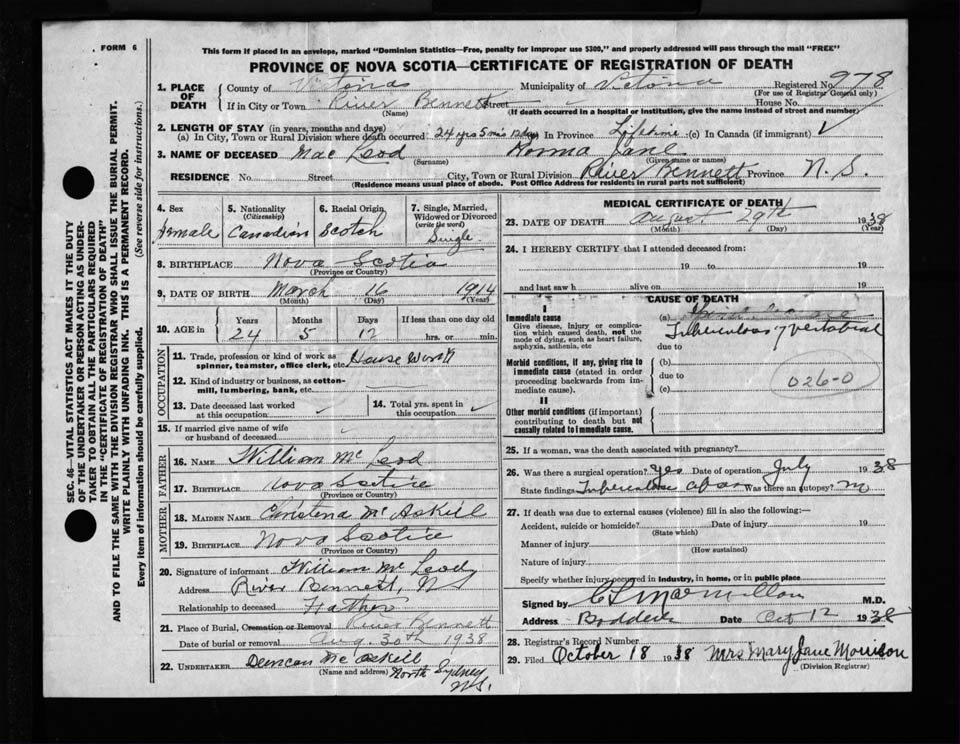 FORM 6
This form if placed in an envelope, marked "Dominion Statistics—Free, penalty for improper use $300," and properly addressed will pass through the mail "FREE"
PROVINCE OF NOVA SCOTIA—CERTIFICATE OF REGISTRATION OF DEATH
1. PLACE OF DEATH
County of Victoria Municipality of Victoria Registered No. 978
(For use of Registrar General only)
If in City or Town River Bennett Street House No.
(Name) (If death occurred in a hospital or institution, give the name instead of street and number)
2. LENGTH OF STAY (in years, months and days)
(a) In City, Town or Rural Division where death occurred 24 yrs 5 mos 12 days In Province Lifetime (c) In Canada (if immigrant) ✓
3. NAME OF DECEASED Mac Leod Norma Jane
(Surname) (Given name or names)
RESIDENCE No. Street City, Town or Rural Division River Bennett Province N. S.
(Residence means usual place of abode. Post Office Address for residents in rural parts not sufficient)
4. Sex Female
5. Nationality (Citizenship) Canadian
6. Racial Origin Scotch
7. Single, Married, Widowed or Divorced (write the word) Single
8. BIRTHPLACE Nova Scotia
(Province or Country)
9. DATE OF BIRTH March 16 1914
(Month) (Day) (Year)
10. AGE in Years Months Days If less than one day old
24 5 12 hrs. or min.
OCCUPATION
11. Trade, profession or kind of work as spinner, teamster, office clerk, etc. House Work
12. Kind of industry or business, as cotton-mill, lumbering, bank, etc.
13. Date deceased last worked at this occupation ✓
14. Total yrs. spent in this occupation ✓
15. If married give name of wife or husband of deceased ✓
FATHER
16. NAME William Mc Leod
17. BIRTHPLACE Nova Scotia
(Province or Country)
MOTHER
18. MAIDEN NAME Christena Mc Askill
19. BIRTHPLACE Nova Scotia
(Province or Country)
20. Signature of informant William Mc Leod
Address River Bennett, N S
Relationship to deceased Father
21. Place of Burial, Cremation or Removal River Bennett
Date of burial or removal Aug. 30th 1938
22. UNDERTAKER Duncan Mc Askill
(Name and address) North Sydney
N.S.
MEDICAL CERTIFICATE OF DEATH
23. DATE OF DEATH August 29th 1938
(Month) (Day) (Year)
24. I HEREBY CERTIFY that I attended deceased from:
19 to 19
and last saw h alive on 19
CAUSE OF DEATH
I
Immediate cause
Give disease, injury or complication which caused death, not the mode of dying, such as heart failure, asphyxia, asthenia, etc
(a)
Tuberculosis of vertebral
due to
Morbid conditions, if any, giving rise to immediate cause (stated in order proceeding backwards from immediate cause).
(b)
due to
(c)
026-0
II
Other morbid conditions (if important) contributing to death but not causally related to immediate cause.
25. If a woman, was the death associated with pregnancy?
26. Was there a surgical operation? Yes Date of operation July 1938
State findings Tuberculose Was there an autopsy?
27. If death was due to external causes (violence) fill in also the following:—
Accident, suicide or homicide? Date of injury 19
(State which)
Manner of injury
(How sustained)
Nature of injury
Specify whether injury occurred in industry, in home, or in public place
Signed by C L MacMillan M.D.
Address Baddeck Date Oct 12 1938
28. Registrar's Record Number
29. Filed October 18 1938 Mrs Mary Jane Morrison
(Division Registrar)
SEC. 46—VITAL STATISTICS ACT MAKES IT THE DUTY
OF THE UNDERTAKER OR PERSON ACTING AS UNDER-
TAKER TO OBTAIN ALL THE PARTICULARS REQUIRED
IN THE "CERTIFICATE OF REGISTRATION OF DEATH"
AND TO FILE THE SAME WITH THE DIVISION REGISTRAR WHO SHALL ISSUE THE BURIAL PERMIT.
WRITE PLAINLY WITH UNFADING INK. THIS IS A PERMANENT RECORD.
Every item of information should be carefully supplied. (See reverse side for instructions.)